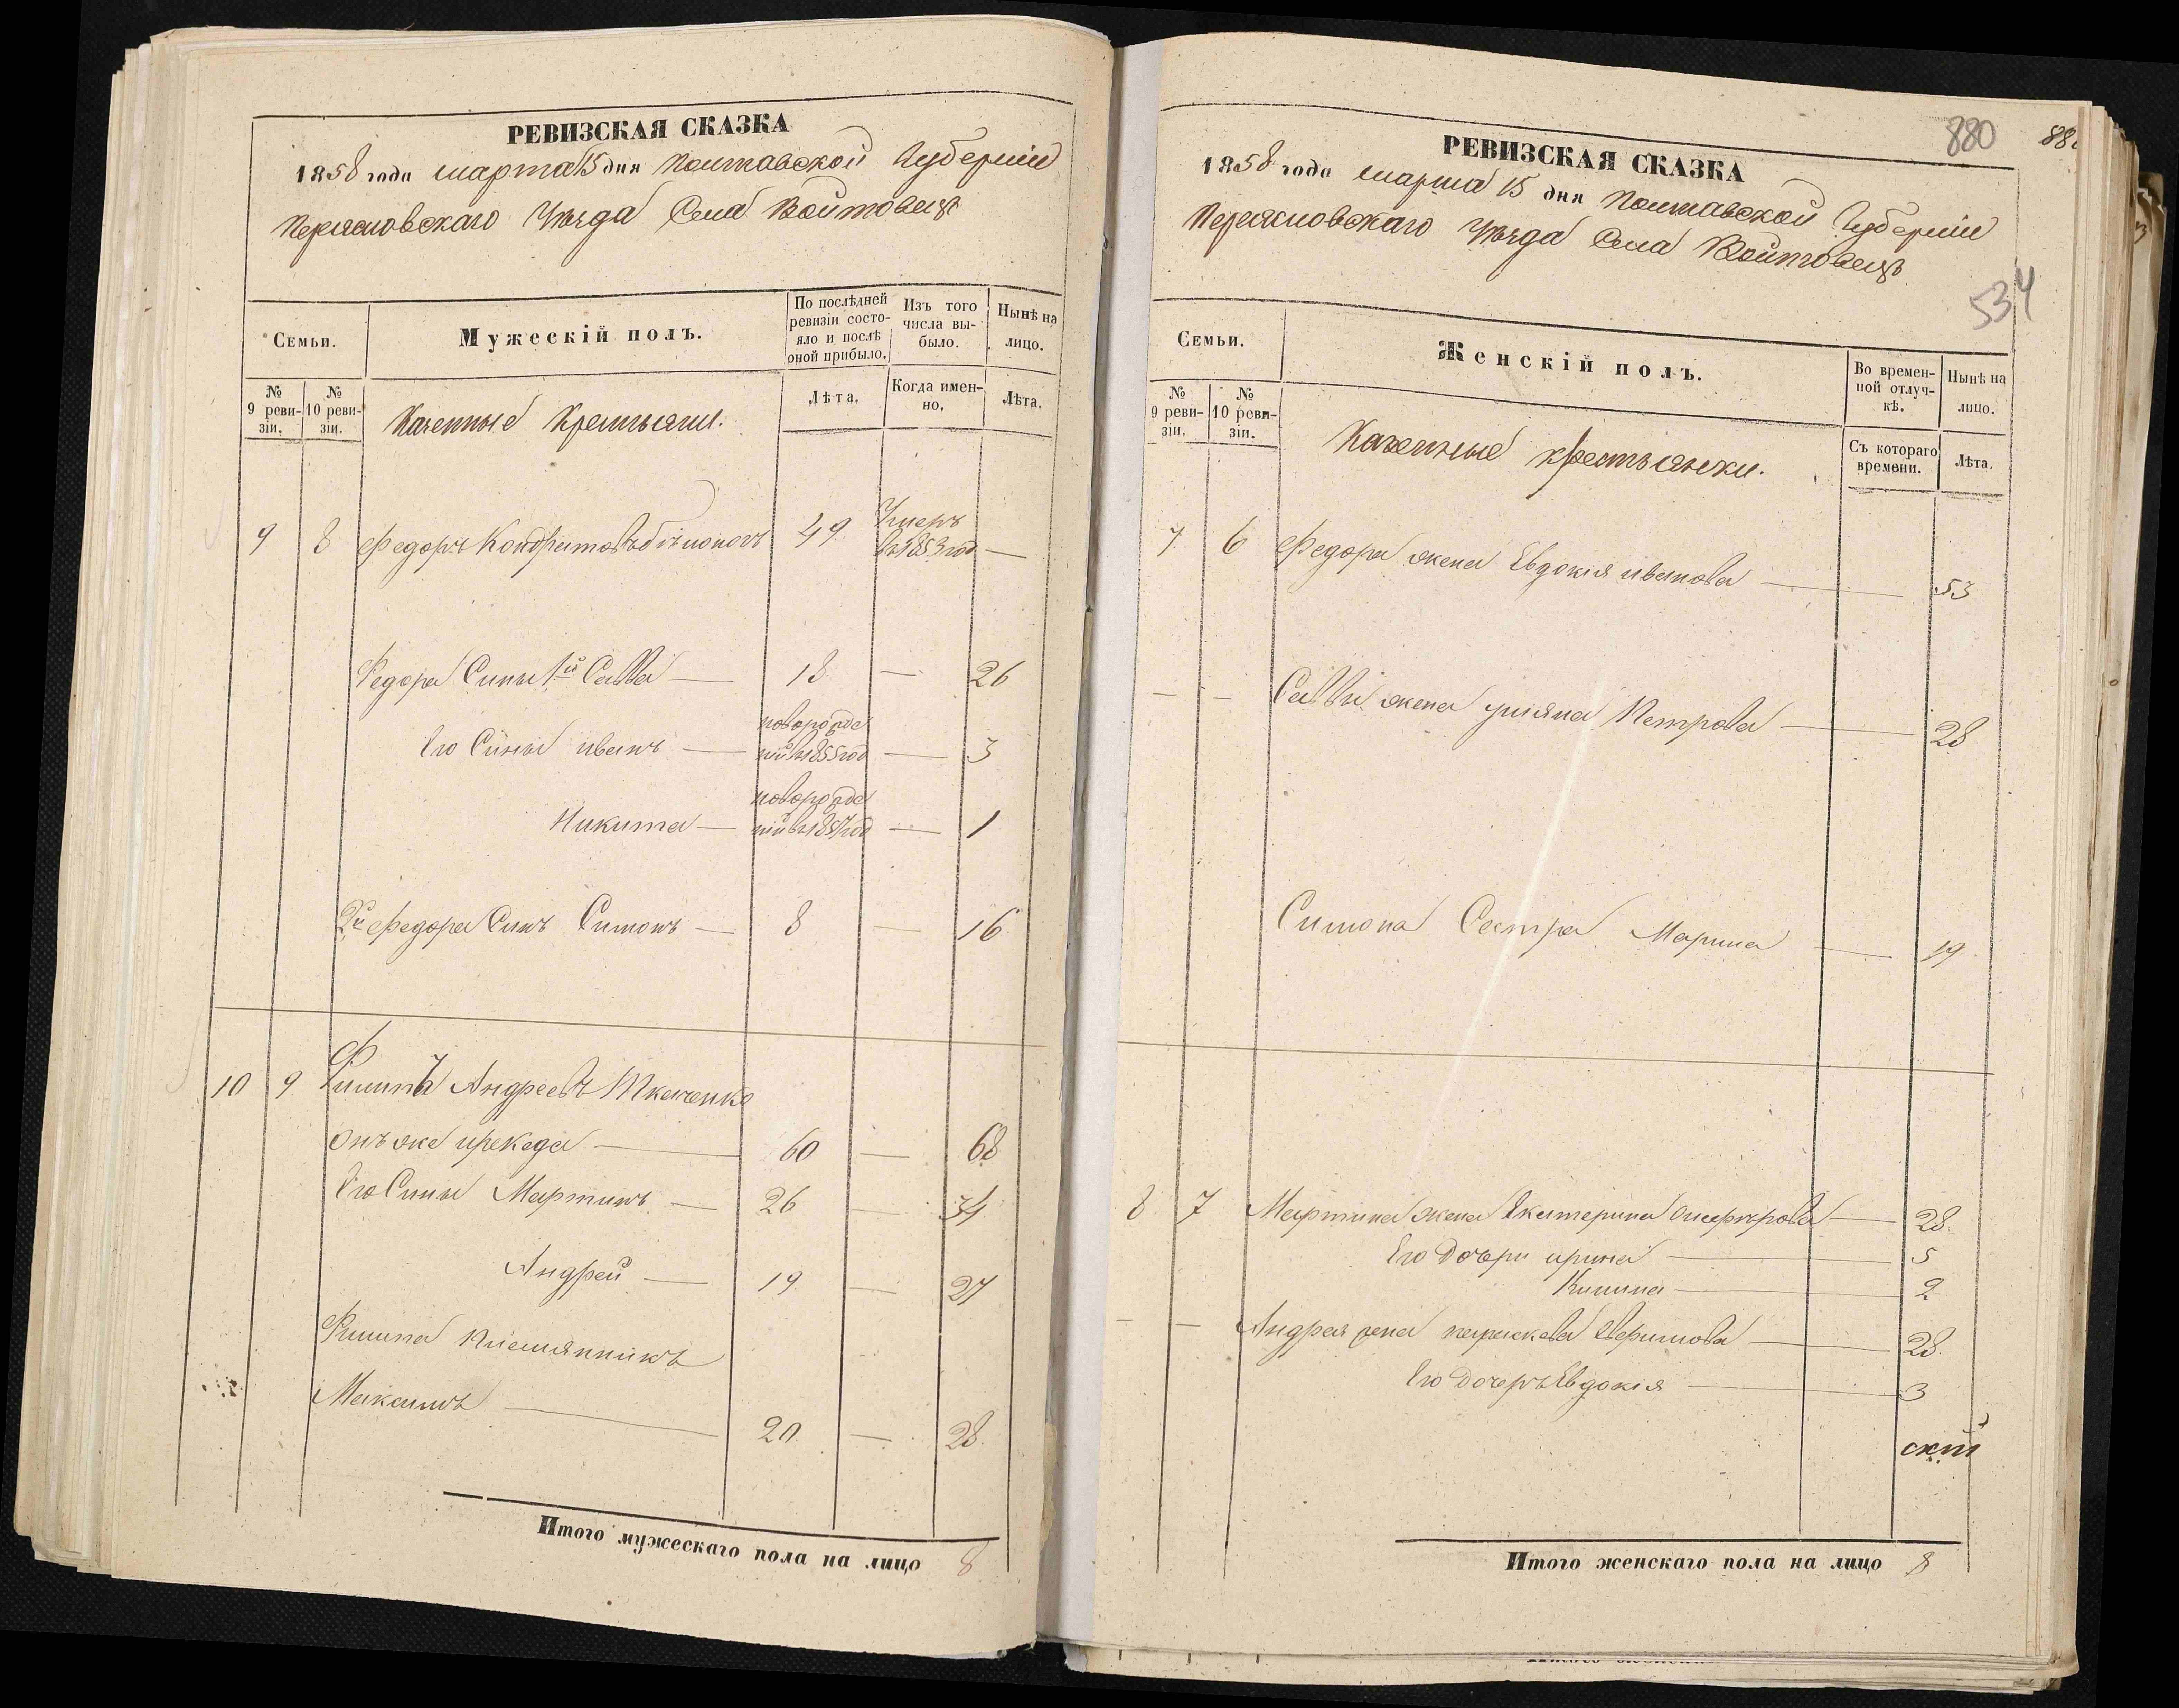 РЕВИЗСКАЯ СКАЗКА
1858 года марта 15 дня Полтавской Губерніи
Переясловскаго Уѣзда Села Войтовецъ
Семьи.
Мужескій полъ.
По послѣдней ревизіи состояло и послѣ оной прибыло.
Изъ того числа выбыло.
Нынѣ на лицо.
№ 9 ревизіи.
№ 10 ревизіи.
Казенные Крестьяни.
Лѣта.
Когда именно.
Лѣта.
9 8 Федоръ Кондратовъ 49 Умеръ въ 1853 год —
Федора Сины 1й Савва — 18 — 26
Его Сины иванъ — новорожде ній въ 1855 год — 3
Никита — новорожде ній въ 1857 год — 1
2й Федора Синъ Симонъ — 8 — 16
10 9 Филипъ Андреевъ Ткаченко
Онъ же 60 — 68
Его Сины Мартинъ — 26 — 34
Андрей — 19 — 27
Филипа Племянникъ
Максимъ — 20 — 28
Итого мужескаго пола на лицо 8
880
88
РЕВИЗСКАЯ СКАЗКА
1858 года марта 15 дня Полтавской Губерніи
Переясловскаго Уѣзда Села Войтовецъ
534
Семьи.
Женскій полъ.
Во временной отлучкѣ.
Нынѣ на лицо.
№ 9 ревизіи.
№ 10 ревизіи.
Казенные крестьянки.
Съ котораго времени.
Лѣта.
7 6 Федора жена Евдокія иванова — 53
— — Савви жена уліяна Петрова — 28
Симона Сестра Марина — 19
8 7 Мартина жена Екатерина — 28
Его дочери ирина — 5
Килина — 2
— — Андрея жена параскева — 28
Его дочеръ Евдокія — 3
скій
Итого женскаго пола на лицо 8